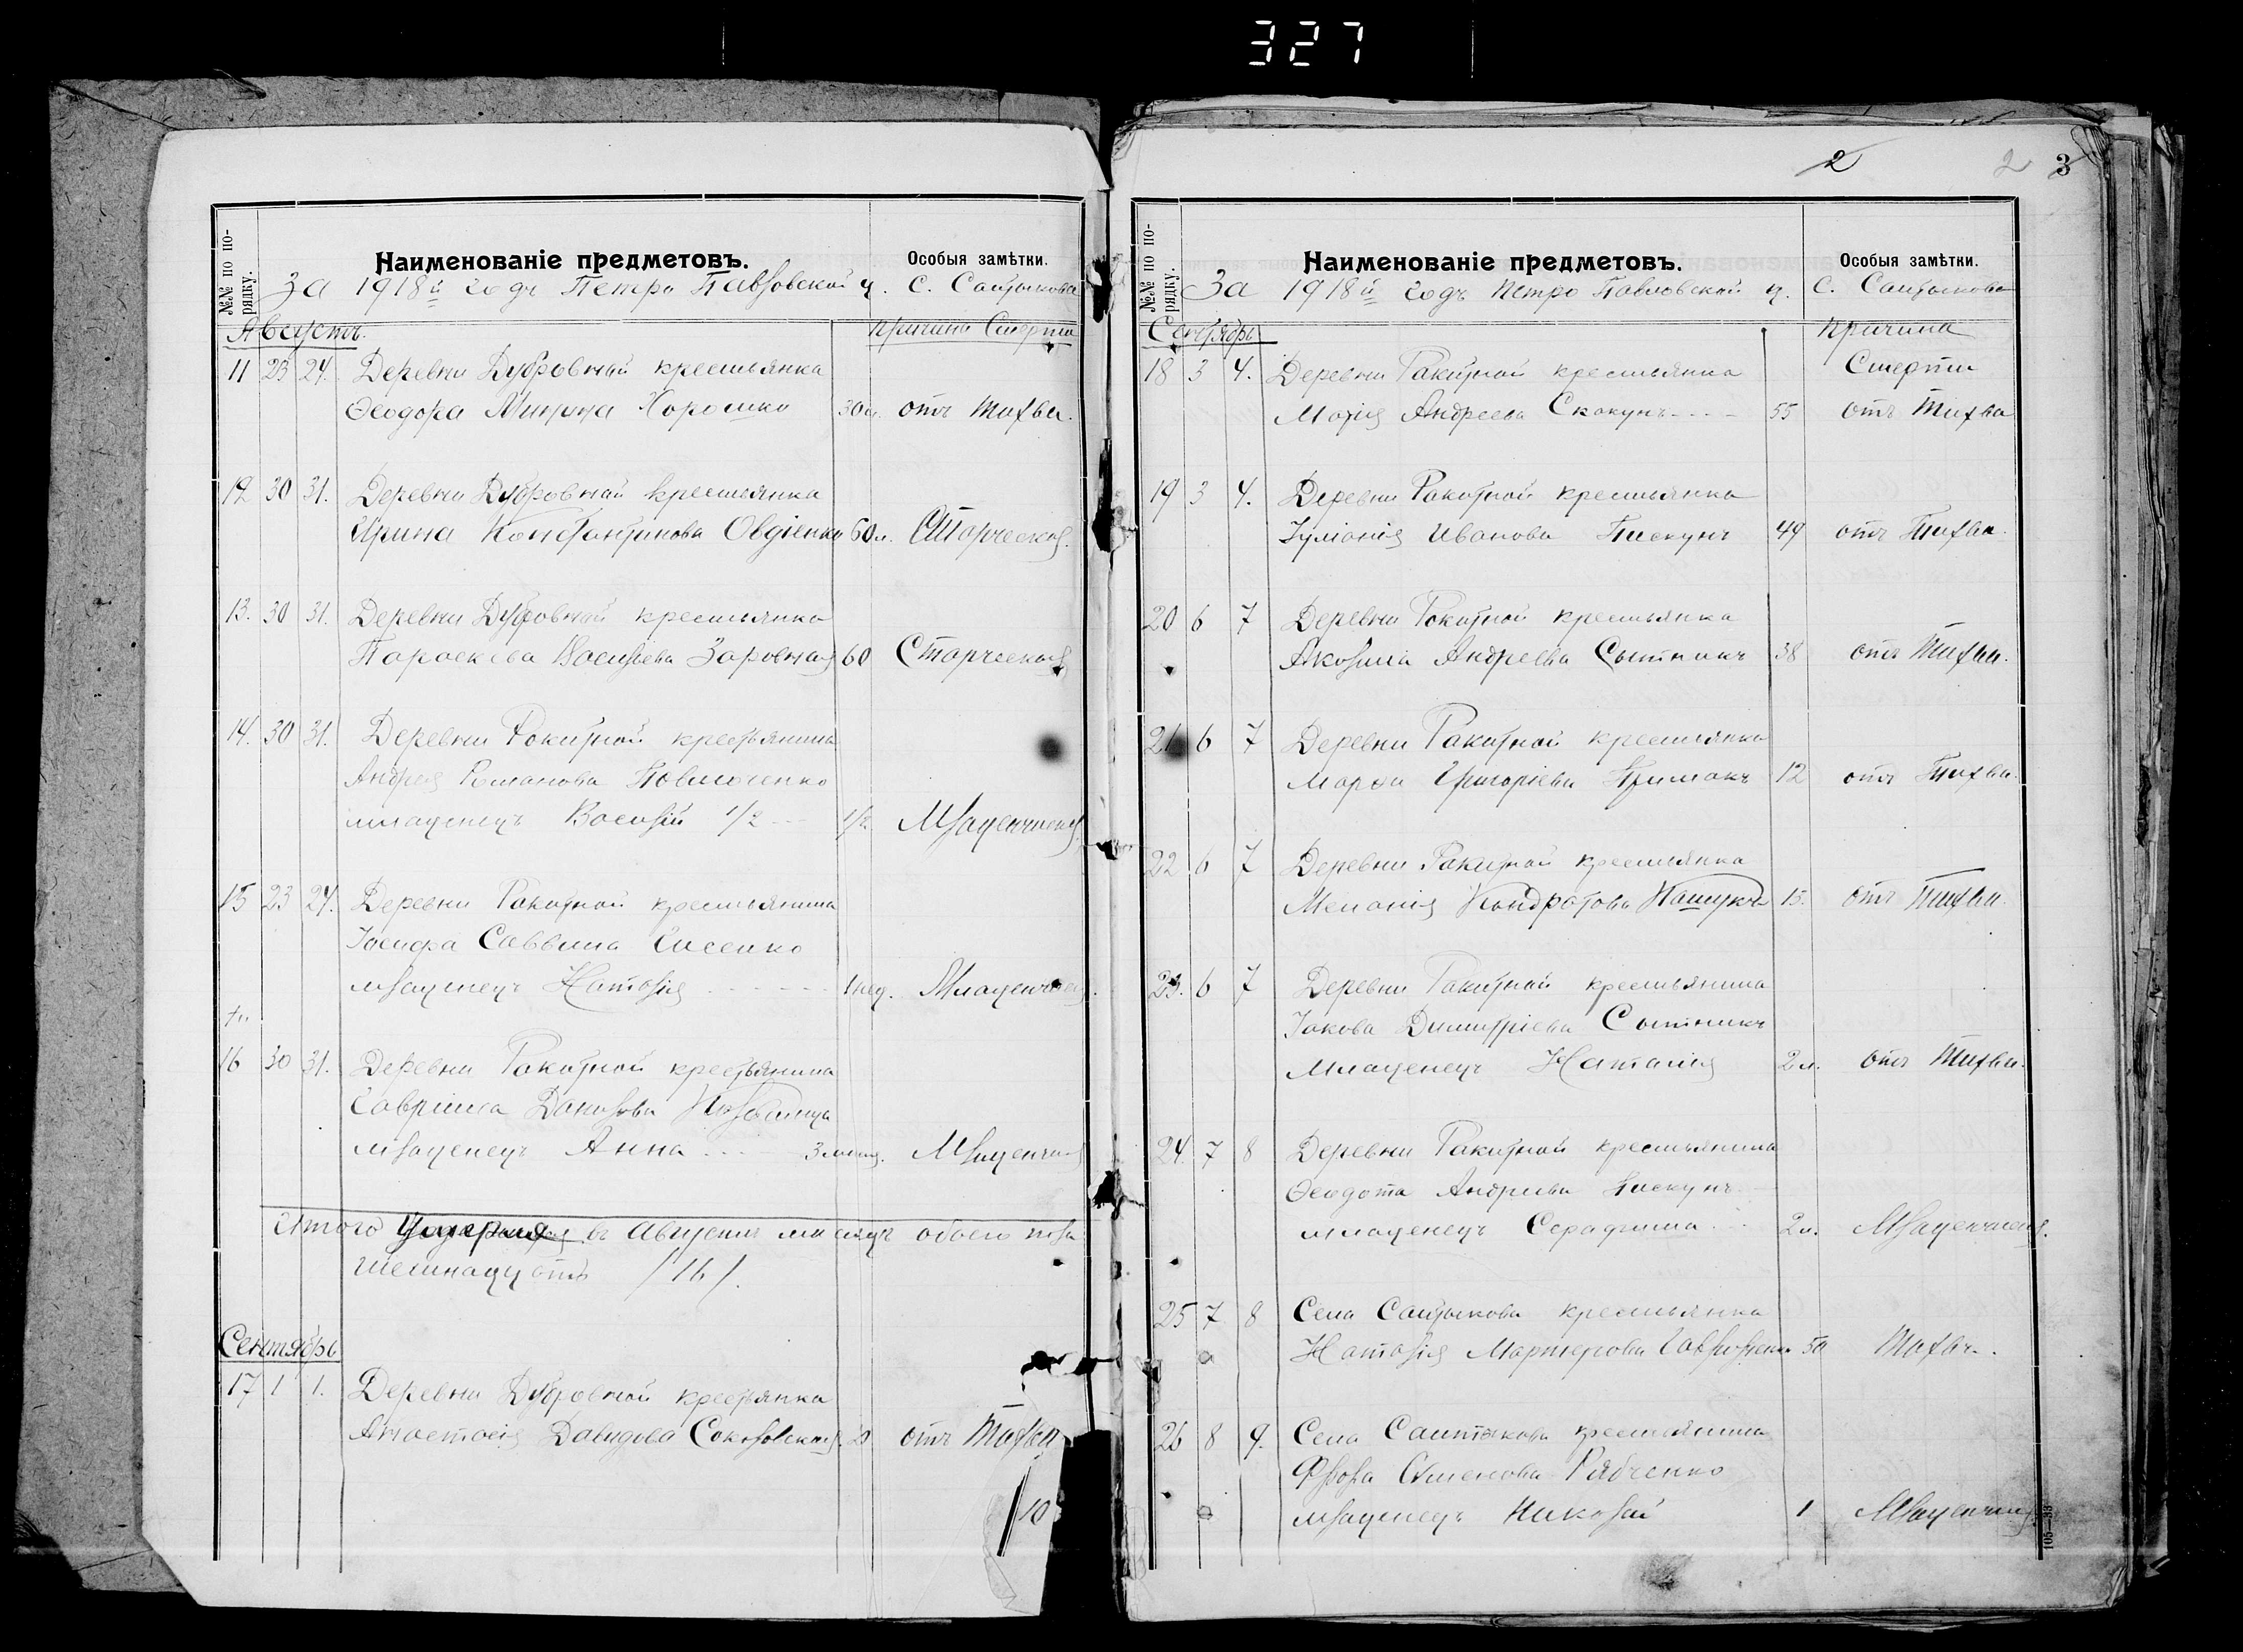 327
№№ по порядку.
Наименованіе предметовъ.
Особыя замѣтки.
За 1918й годъ Петро Павловской ц. с. Салтыкова
Августъ.
причина Смерти
11 23 24. Деревни Дубровной крестьянка
Ѳеодора Хорошко 30л. отъ Тифа.
12 30 31. Деревни Дубровной крестьянка
Ирина Константинова Овдіенко 60л. Старческая.
13. 30 31. Деревни Дубровной крестьянка
Параскева Васильева 60 Старческая
14. 30 31. Деревни Ракитной крестьянина
Андрея Романова Павлюченко
младенецъ Василій 1/2 --- 1/2. Младенческая
15 23 24. Деревни Ракитной крестьянина
Іосифа Саввина Лисенко
младенецъ Наталія ------ 1 нед. Младенческая.
16 30 31. Деревни Ракитной крестьянина
Гавріила Данилова
младенецъ Анна --- 3 Младенческая
Итого умерло въ Августѣ мѣсяцѣ обоего пола
шестнадцать /16/.
Сентябрь
17 1 1. Деревни Дубровной крестьянка
Анастасія Давидова Соколовская отъ Тифа
10
2 2 3
№№ по порядку.
Наименованіе предметовъ.
Особыя замѣтки.
За 1918й годъ Петро Павловской ц. с. Салтыкова
Сентябрь
причина
18 3 4. Деревни Ракитной крестьянка Смерти
Марія Андреева Скакунъ---- 55 отъ Тифа
19 3 4. Деревни Ракитной крестьянка
Іуліанія Иванова Пискунъ 49 отъ Тифа.
20 6 7 Деревни Ракитной крестьянка
Акилина Андреева Сытникъ 38 отъ Тифа.
21 6 7 Деревни Ракитной крестьянка
Марѳа Григоріева Примакъ 12 отъ Тифа.
22 6 7 Деревни Ракитной крестьянка
Меланія Кондратова 15. отъ Тифа.
23. 6 7 Деревни Ракитной крестьянина
Іакова Димитріева Сытникъ
младенецъ Наталія 2 л. отъ Тифа.
24. 7 8 Деревни Ракитной крестьянина
Ѳеодота Андреева Пискунъ
младенецъ Серафима 2 л. Младенческая.
25 7 8 Села Салтыкова крестьянка
Наталія Гавриленко 50 Тифъ.
26 8 9. Села Салтыкова крестьянина
Флора Семенова Рябченко
младенецъ Николай 1 Младенческая
105—33